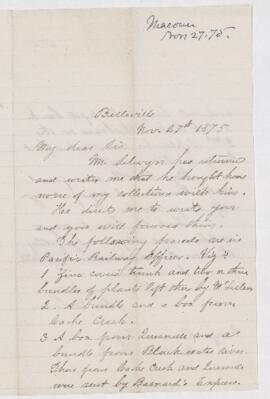 Macoun
Nov 27. 75.
Belleville
Nov. 27th 1875
My dear Sir.
Mr. Selwyn has returned
and writes me that he brought home
none of my collections with him.
He direct me to write you
and you will forward them.
The following parcels are in
Pacific Railway Offices. Viz:
1 Zinc cover trunk and two or three
bundles of plants left there by
2. A bundle and a box from
Cache Creek.
3 A box from Quesnelle and a
bundle from Black water river.
Those from Cache Creek and Quesnelle
were sent by Barnard's Express.